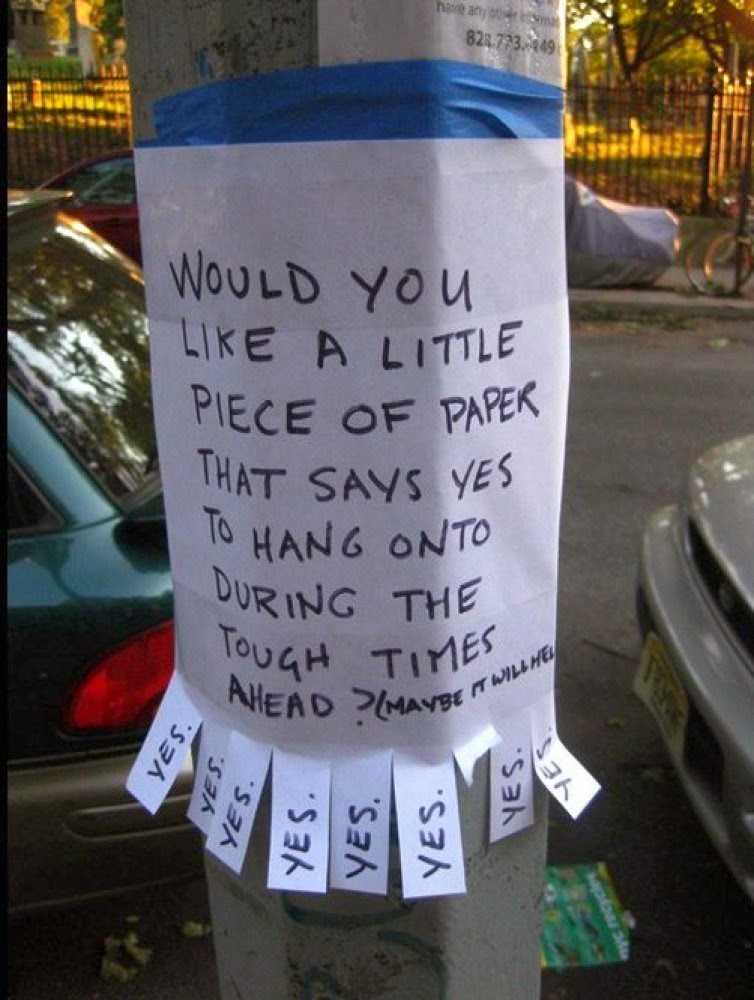 have any other
WOULD YOU
LIKE A LITTLE
PIECE OF PAPER
THAT SAYS YES
TO HANG ONTO
DURING THE
TOUGH TIMES
AHEAD ? (MAYBE IT WILL HEL
YES.
YES.
YES.
YES.
YES.
YES.
YES.
YES.